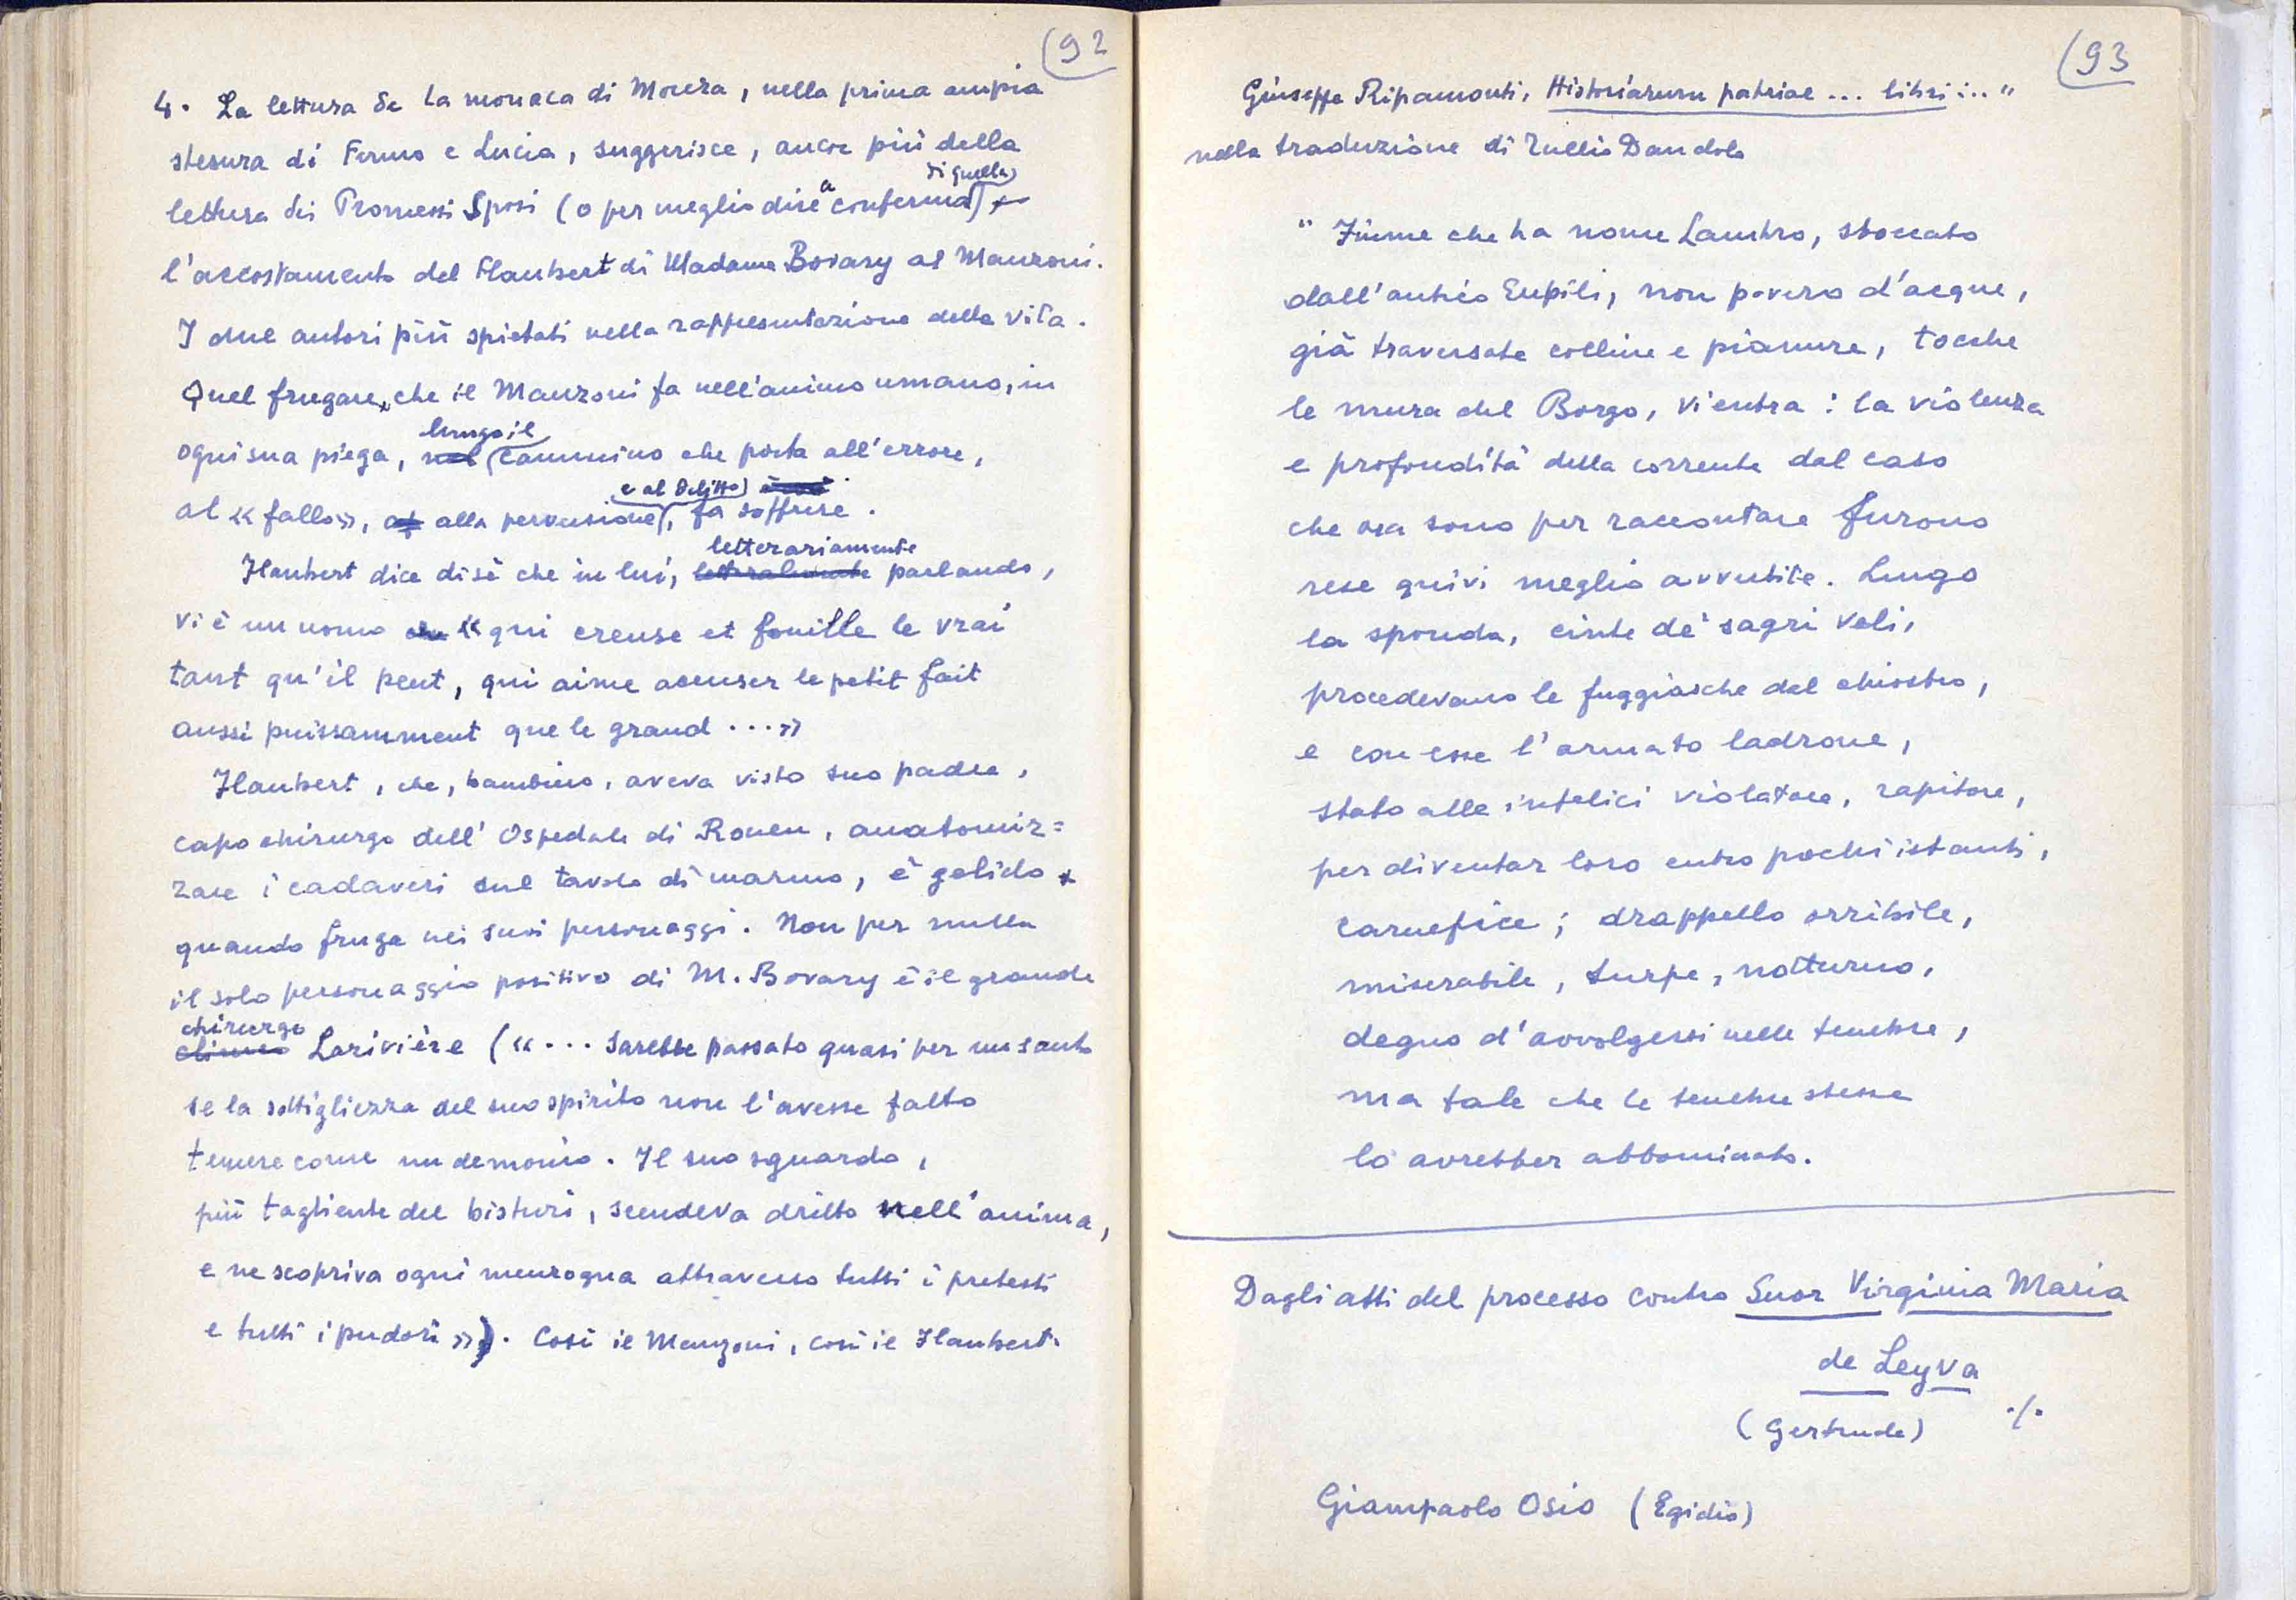 (92
4. La lettura de La monaca di Monza, nella prima ampia
stesura di Fermo e Lucia, suggerisce, ancor più della
di quella
lettura dei Promessi Sposi (o per meglio dire a conferma)
l'accostamento del Flaubert di Madame Bovary al Manzoni.
I due autori più spietati nella rappresentazione della vita.
Quel frugare, che il Manzoni fa nell'animo umano, in
lungo il
ogni sua piega, nel cammino che porta all'errore,
e al delitto
al «fallo», alla perversione, fa soffrire.
letterariamente
Flaubert dice di sè che in lui, letteralmente parlando,
vi è un uomo «qui creuse et fouille le vrai
tant qu'il peut, qui aime accuser le petit fait
aussi puissamment que le grand ...»
Flaubert, che, bambino, aveva visto suo padre,
capo chirurgo dell'Ospedale di Rouen, anatomiz=
zare i cadaveri sul tavolo di marmo, è gelido
quando fruga nei suoi personaggi. Non per nulla
il solo personaggio positivo di M. Bovary è il grande
chirurgo
clinico Larivière («... Sarebbe passato quasi per un santo
se la sottigliezza del suo spirito non l'avesse fatto
temere come un demonio. Il suo sguardo,
più tagliente del bisturi, scendeva dritto nell'anima,
e ne scopriva ogni menzogna attraverso tutti i pretesti
e tutti i pudori»). Così il Manzoni, così il Flaubert.
(93
Giuseppe Ripamonti, Historiarum patriae ... libri ... "
nella traduzione di Tullio Dandolo
" Fiume che ha nome Lambro, sboccato
dall'antico Eupili, non povero d'acque,
già traversate colline e pianure, tocche
le mura del Borgo, vi entra: la violenza
e profondità della corrente dal caso
che ora sono per raccontare furono
rese quivi meglio avvertite. Lungo
la sponda, cinte de' sagri veli,
procedevano le fuggiasche dal chiostro,
e con esse l'armato ladrone,
stato alle infelici violatore, rapitore,
per diventar loro entro pochi istanti,
carnefice; drappello orribile,
miserabile, turpe, notturno,
degno d'avvolgersi nelle tenebre,
ma tale che le tenebre stesse
lo avrebber abbominato.
Dagli atti del processo contro Suor Virginia Maria
de Leyva
(Gertrude) ./.
Giampaolo Osio (Egidio)